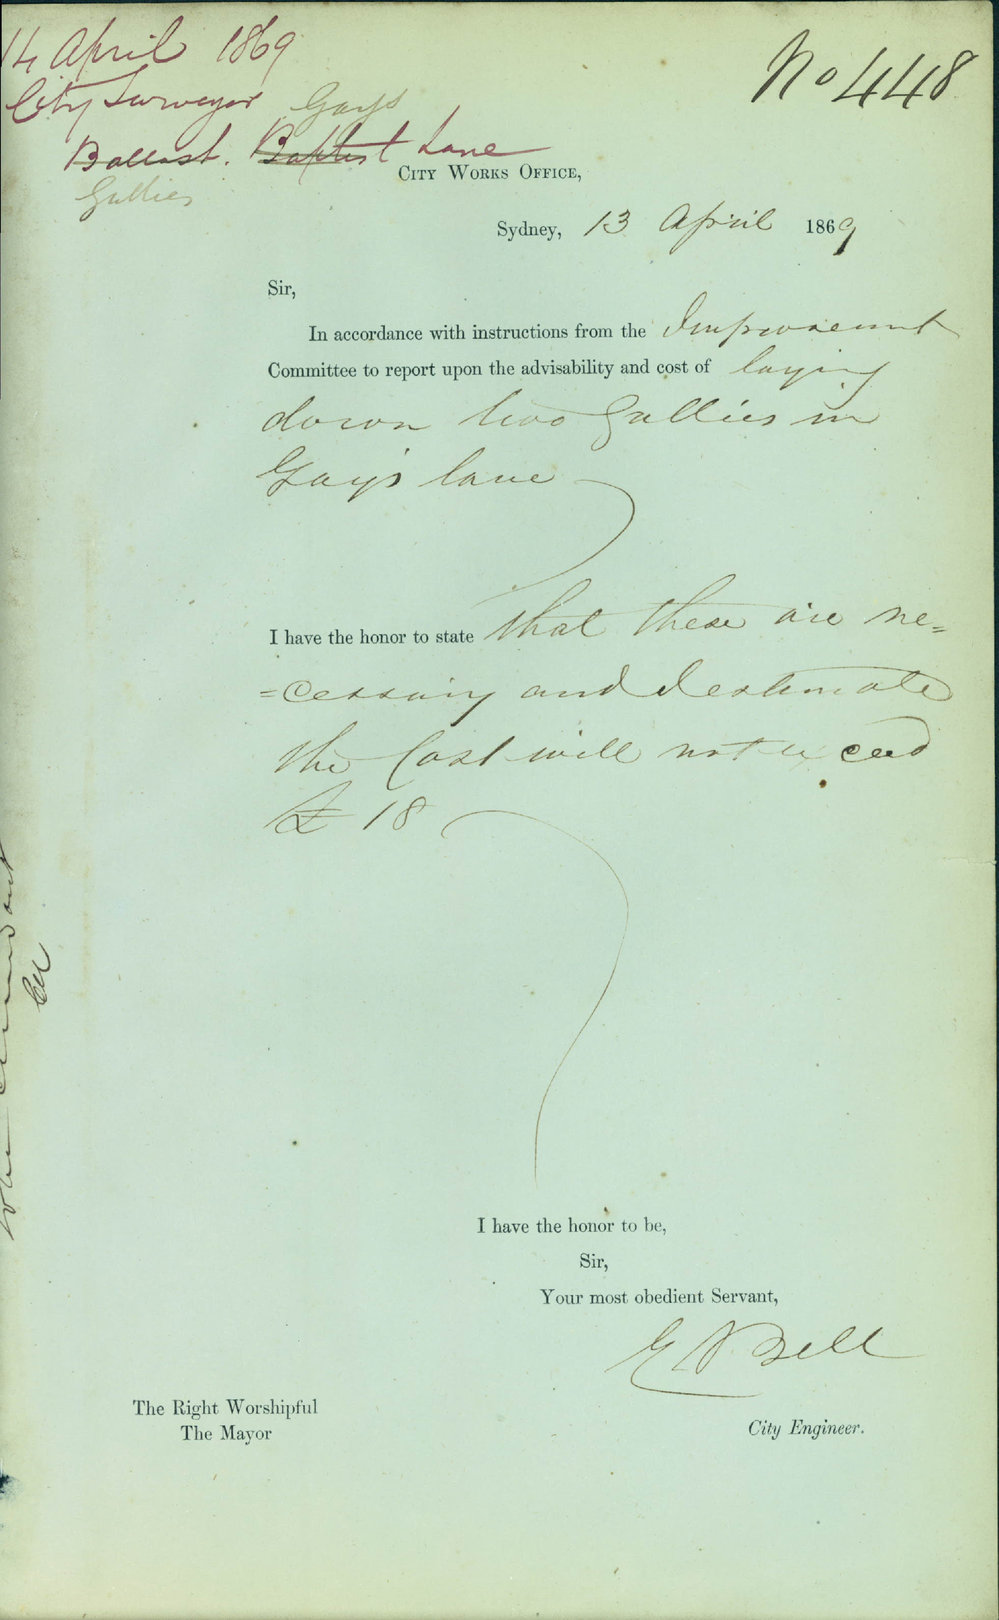 14 April 1869
City Surveyor Gays
Ballast. Baptist Lane
Gullies
No 448
City Works Office,
Sydney, 13 April 1869
Sir,
In accordance with instructions from the Improvement
Committee to report upon the advisability and cost of laying
down two Gullies in
Gay's lane
I have the honor to state that these are ne=
=cessary and I estimate
the Cost will not exceed
£ 18
I have the honor to be,
Sir,
Your most obedient Servant,
E Bell
City Engineer.
The Right Worshipful
The Mayor